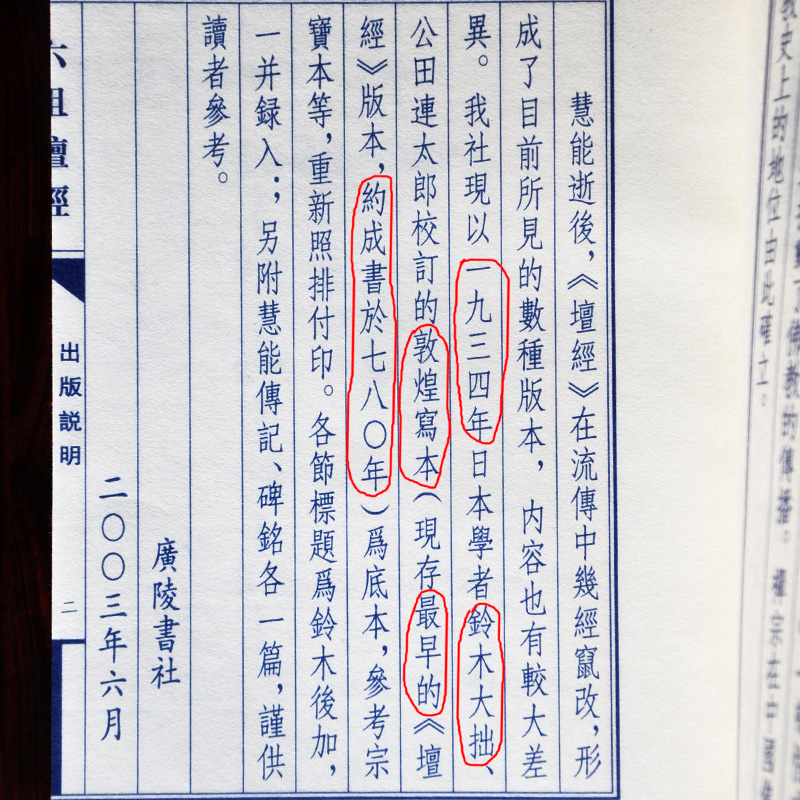 慧能逝後，《壇經》在流傳中幾經竄改，形
成了目前所見的數種版本，內容也有較大差
異。我社現以一九三四年日本學者鈴木大拙、
公田連太郎校訂的敦煌寫本（現存最早的《壇
經》版本，約成書於七八〇年）爲底本，參考宗
寶本等，重新照排付印。各節標題爲鈴木後加，
一并録入；另附慧能傳記、碑銘各一篇，謹供
讀者參考。
廣陵書社
二〇〇三年六月
六祖壇經
出版説明
二